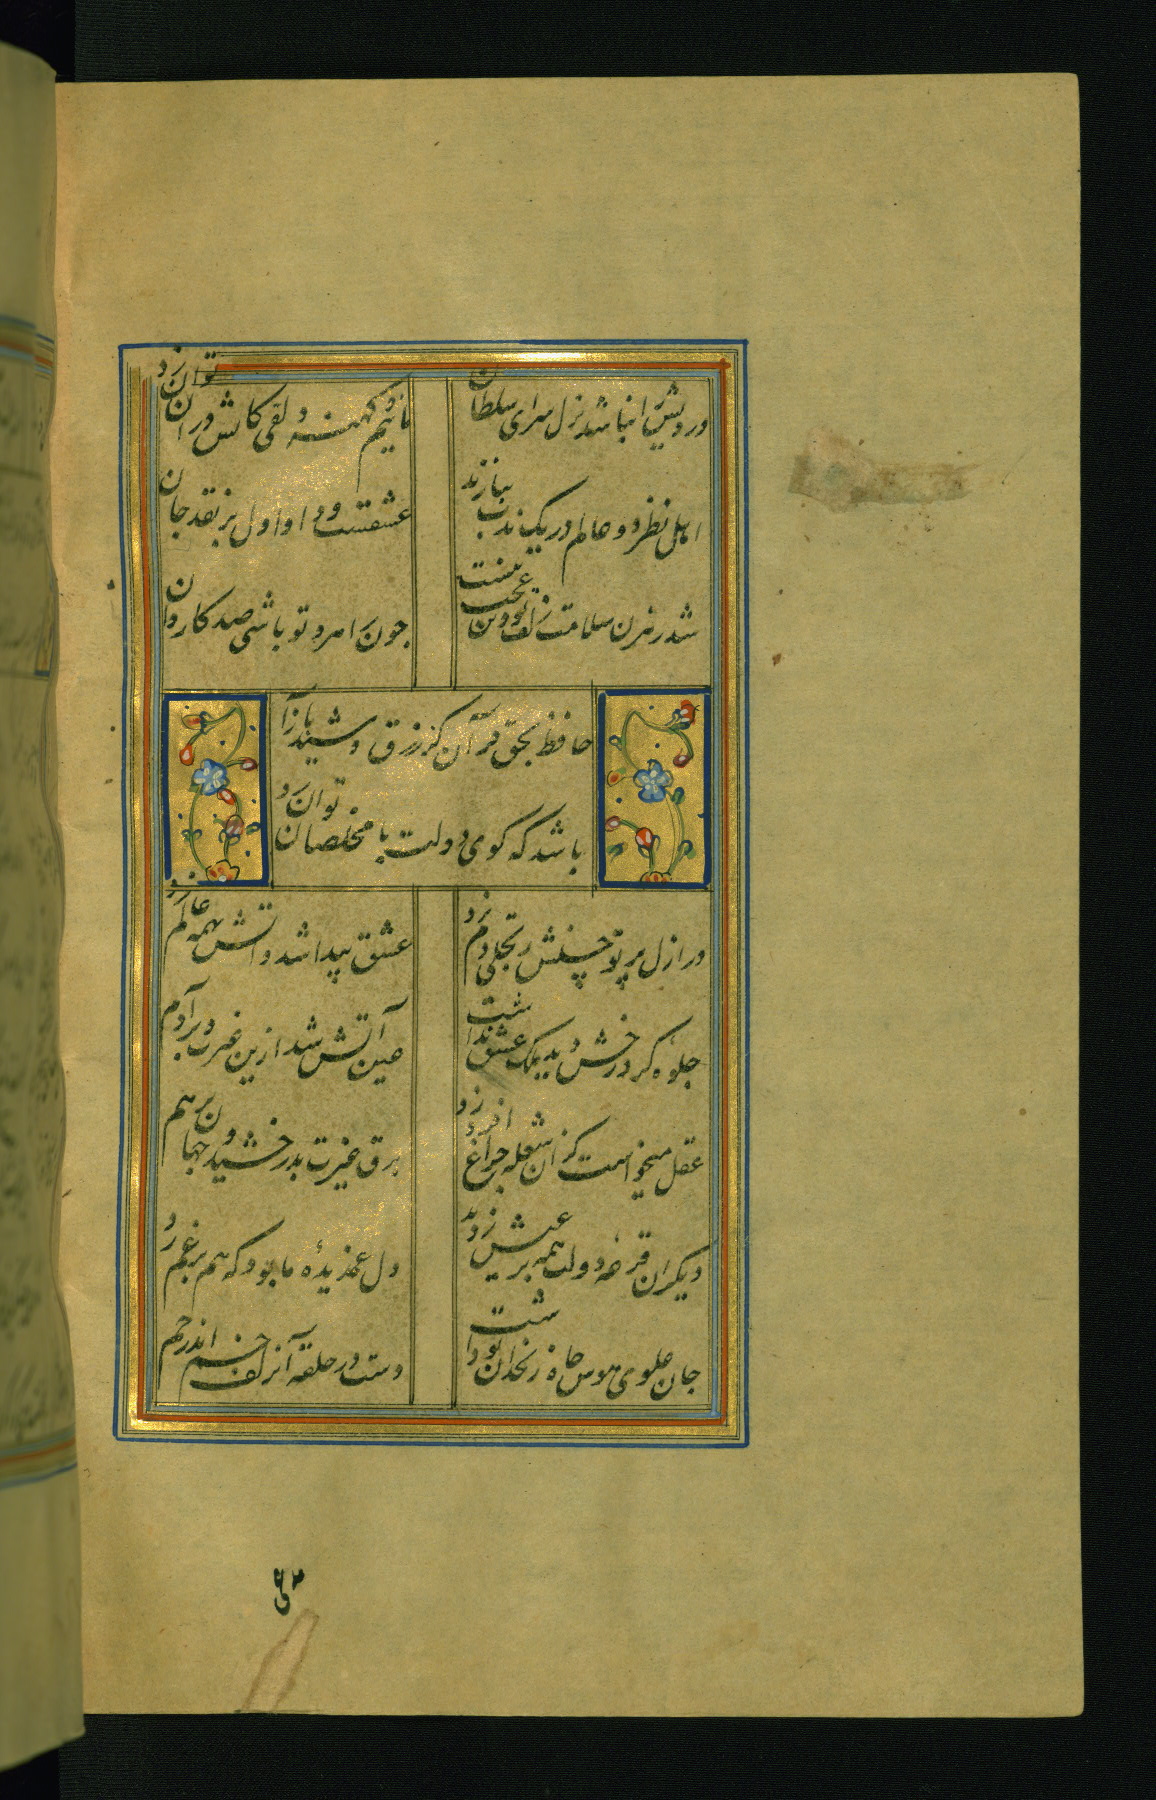 درویش را نباشد نزل سرای سلطان
مائیم و کهنه دلقی کاتش در ان توان زد
اهل نظر دو عالم در یک ندب ببازند
عشقست و داو اول بر نقد جان
شد رهزن سلامت زلف تو وین عجب نیست
چون راهرو تو باشی صد کاروان
حافظ بحق قرآن کز زرق و شید باز آ
باشد که گوی دولت با مخلصان توان زد
در ازل پرتو حسنش ز تجلی دم زد
عشق پیدا شد و اتش بهمه عالم زد
جلوه کرد رخش دید ملک عشق نداشت
عین آتش شد ازین غیرت و بر آدم
عقل میخواست کز ان شعله چراغ افروزد
برق غیرت بدرخشید و جهان برهم
دیگران قرعه دولت همه بر عیش زدند
دل غمدیده ما بود که هم بر غم زد
جان علوی هوس چاه زنخدان تو داشت
دست در حلقه آن زلف خم اندر خم